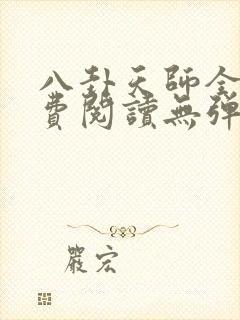 八卦天師全
費閱讀無彈
嚴宏